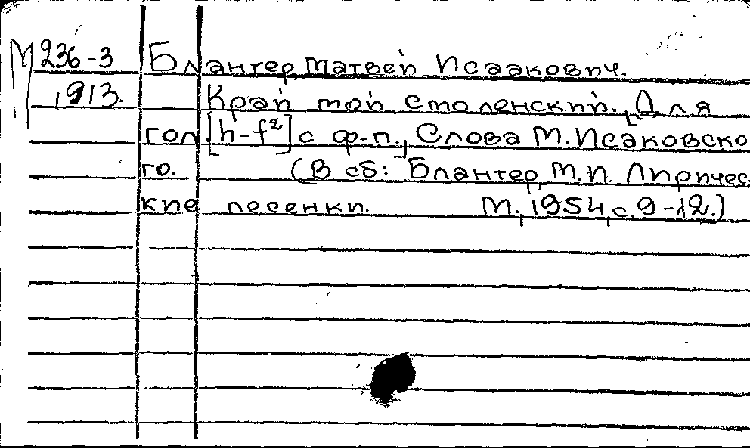 М 236-3 Блантер, Матвей Исаакович.
1913. Край мой Смоленский. [Для
гол. [h-f²] с ф-п.] Слова М. Исаковско
го. (В сб: Блантер, М.И. Лиричес
кие песенки. М., 1954, с. 9-12.)